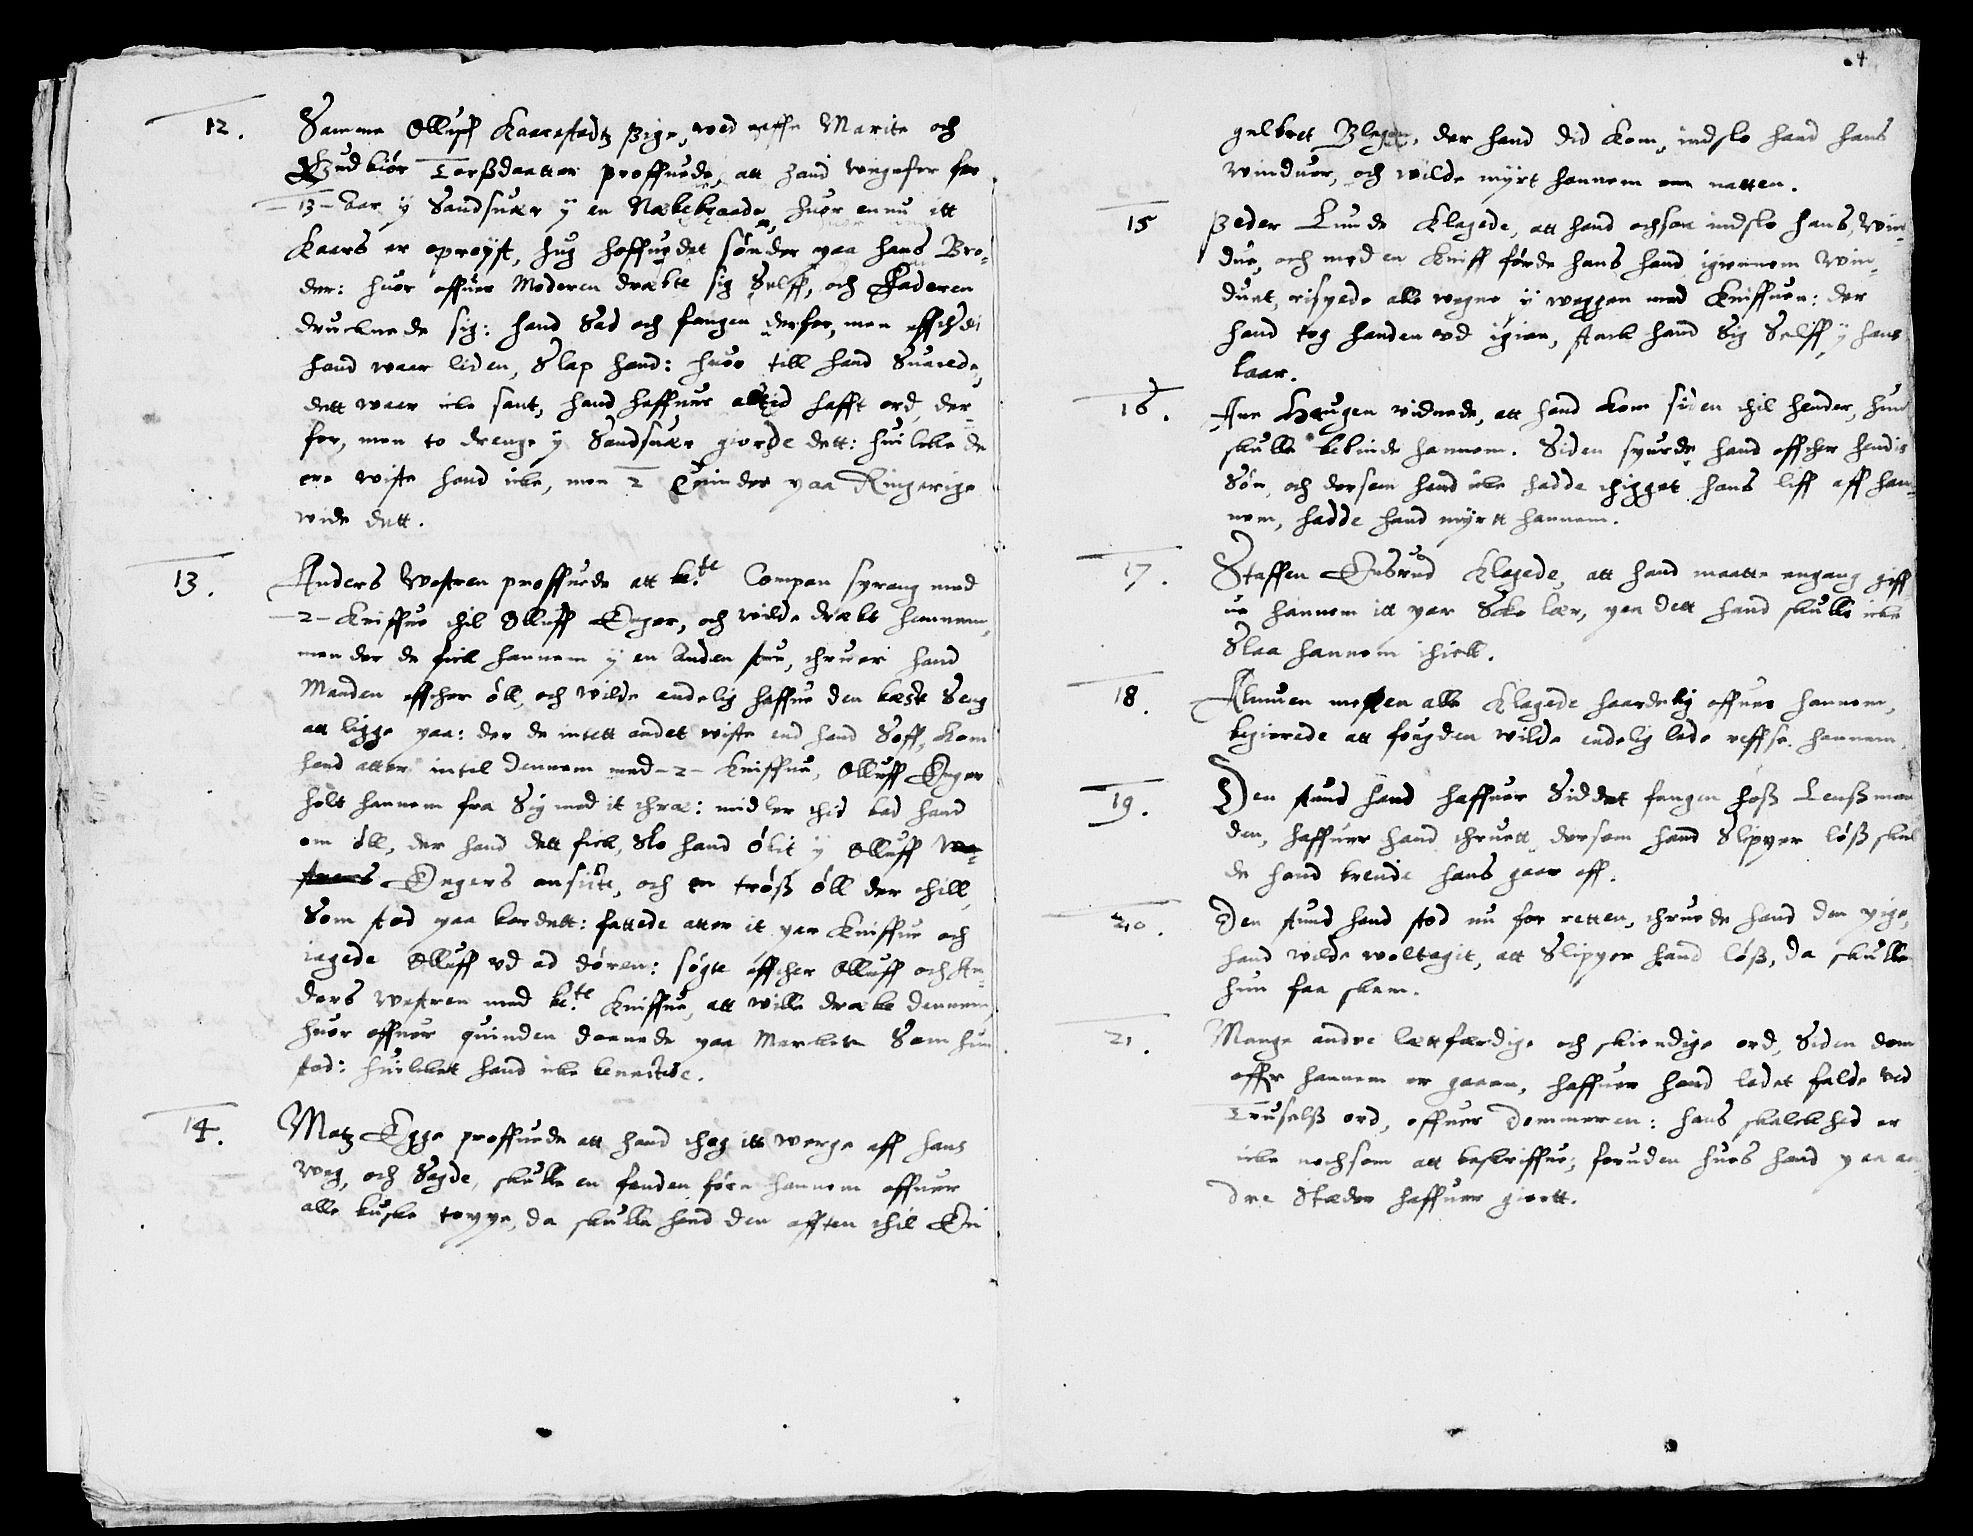 12. Samme Olluff Kaarestadz Pige, ved naffn Marite och
Gudbiør Torßdaatter proffuede, att hand vngefer for
-13- Aar y Sandsuær y en Næbekaade, huor ennu itt
Kaars er opreyst, hug hoffuedet sønder paa hans Bro¬
der: huor offuer Moderen drabte sig Selff, och Faderen
drucknede sig: hand Sad och fangen derfor, men effterdi
hand waar liden, Slap hand: huor till hand Suarede,
dett waar icke sant, hand haffuer altid hafft ord der¬
for, men to drenge y Sandsuær giorde dett: huilcke de
ere wiste hand icke, men 2 Quinder paa Ringerige
vide dett.
13. Anders Westren proffuede att be.te Compan sprang med
-2- Kniffue thil Olluff Enger, och wilde dræbt hannem,
men der de fick hannem y en Anden stue, thruer hand
Manden effther øll, och wilde endelig haffue den beste Seng
att ligge paa: der de intett andet wiste end hand Soff, kom
hand atter intil dennem med -2- Kniffue, Olluff Enger
holt hannem fra Sig med it thræ: midler thid bad hand
om øll, der hand dett fick, Slo hand Økit y Olluff We¬
strens Engers ansicte, och en trøß øll der thill,
Som stod paa bordett: fattede atter it par Kniffue och
iagede Olluff vd ad døren: søgte effther Olluff och An¬
ders Westren med be.te Kniffue, att wille dræbe dennem,
huor offuer quinden daanede paa Marcken Som hun
stod: huilckett hand icke benectede.
14. Matz Egge proffuede att hand thog itt werge aff hans
Weg, och Sagde, skulle en fanden føre hannem offuer
alle buske toppe, da skulle hand den afften thil En
4
gelbret Blegen, der hand did kom, indslo hand hans
Winduer, och wilde myrt hannem om natten.
15 Peder Lunde Klagede, att hand ochsaa indslo hans Win¬
due, och med en Kniff førde hans hand igiennem Win¬
duet, rispede alle wegne y weggen med Kniffuen: der
hand tog handen vd igien, stack hand Sig Selff y hans
laar.
16. Ane Haugen vidnede, att hand kom siden thil hender, hun
skulle bebinde hannem. Siden spurde hand effther hendis
Søn, och dersom hand icke hadde thigget hans liff aff han¬
nem, hadde hand myrtt hannem.
17. Staffen Enbrud Klagede, att hand maatte engang giff
ue hannem itt par Skelær, paa dett hand skulle icke
Slaa hannem ihiell.
18. Almuen mesten alle Klagede haardelig offuer hannem,
begierede att fougden wilde endelig lade reffse hannem.
19. Den stund hand haffuer Siddet fangen hoß Lenßman
den, haffuer hand thruett, dersom hand Slipper løß skul
de hand brende hans gaar aff.
20. Den stund hand stod nu for retten, thruede hand den pige,
hand wilde woltagit, att Slipper hand løß, da skulle
hun faa skam.
21. Mange andre lættfærdige och skiendige ord, Siden dom
offr hannem er gaaen, haffuer hand ladet falde ved
Truselß ord, offuer Dommeren: hans skalckhed er
icke nochsom att beskriffue; foruden hues hand paa an
dre Stæder haffuer giortt.